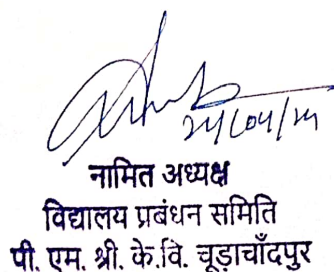 नामित अध्यक्ष
विद्यालय प्रबंधन समिति
पी. एम. श्री. के.वि. चूड़ाचाँदपुर